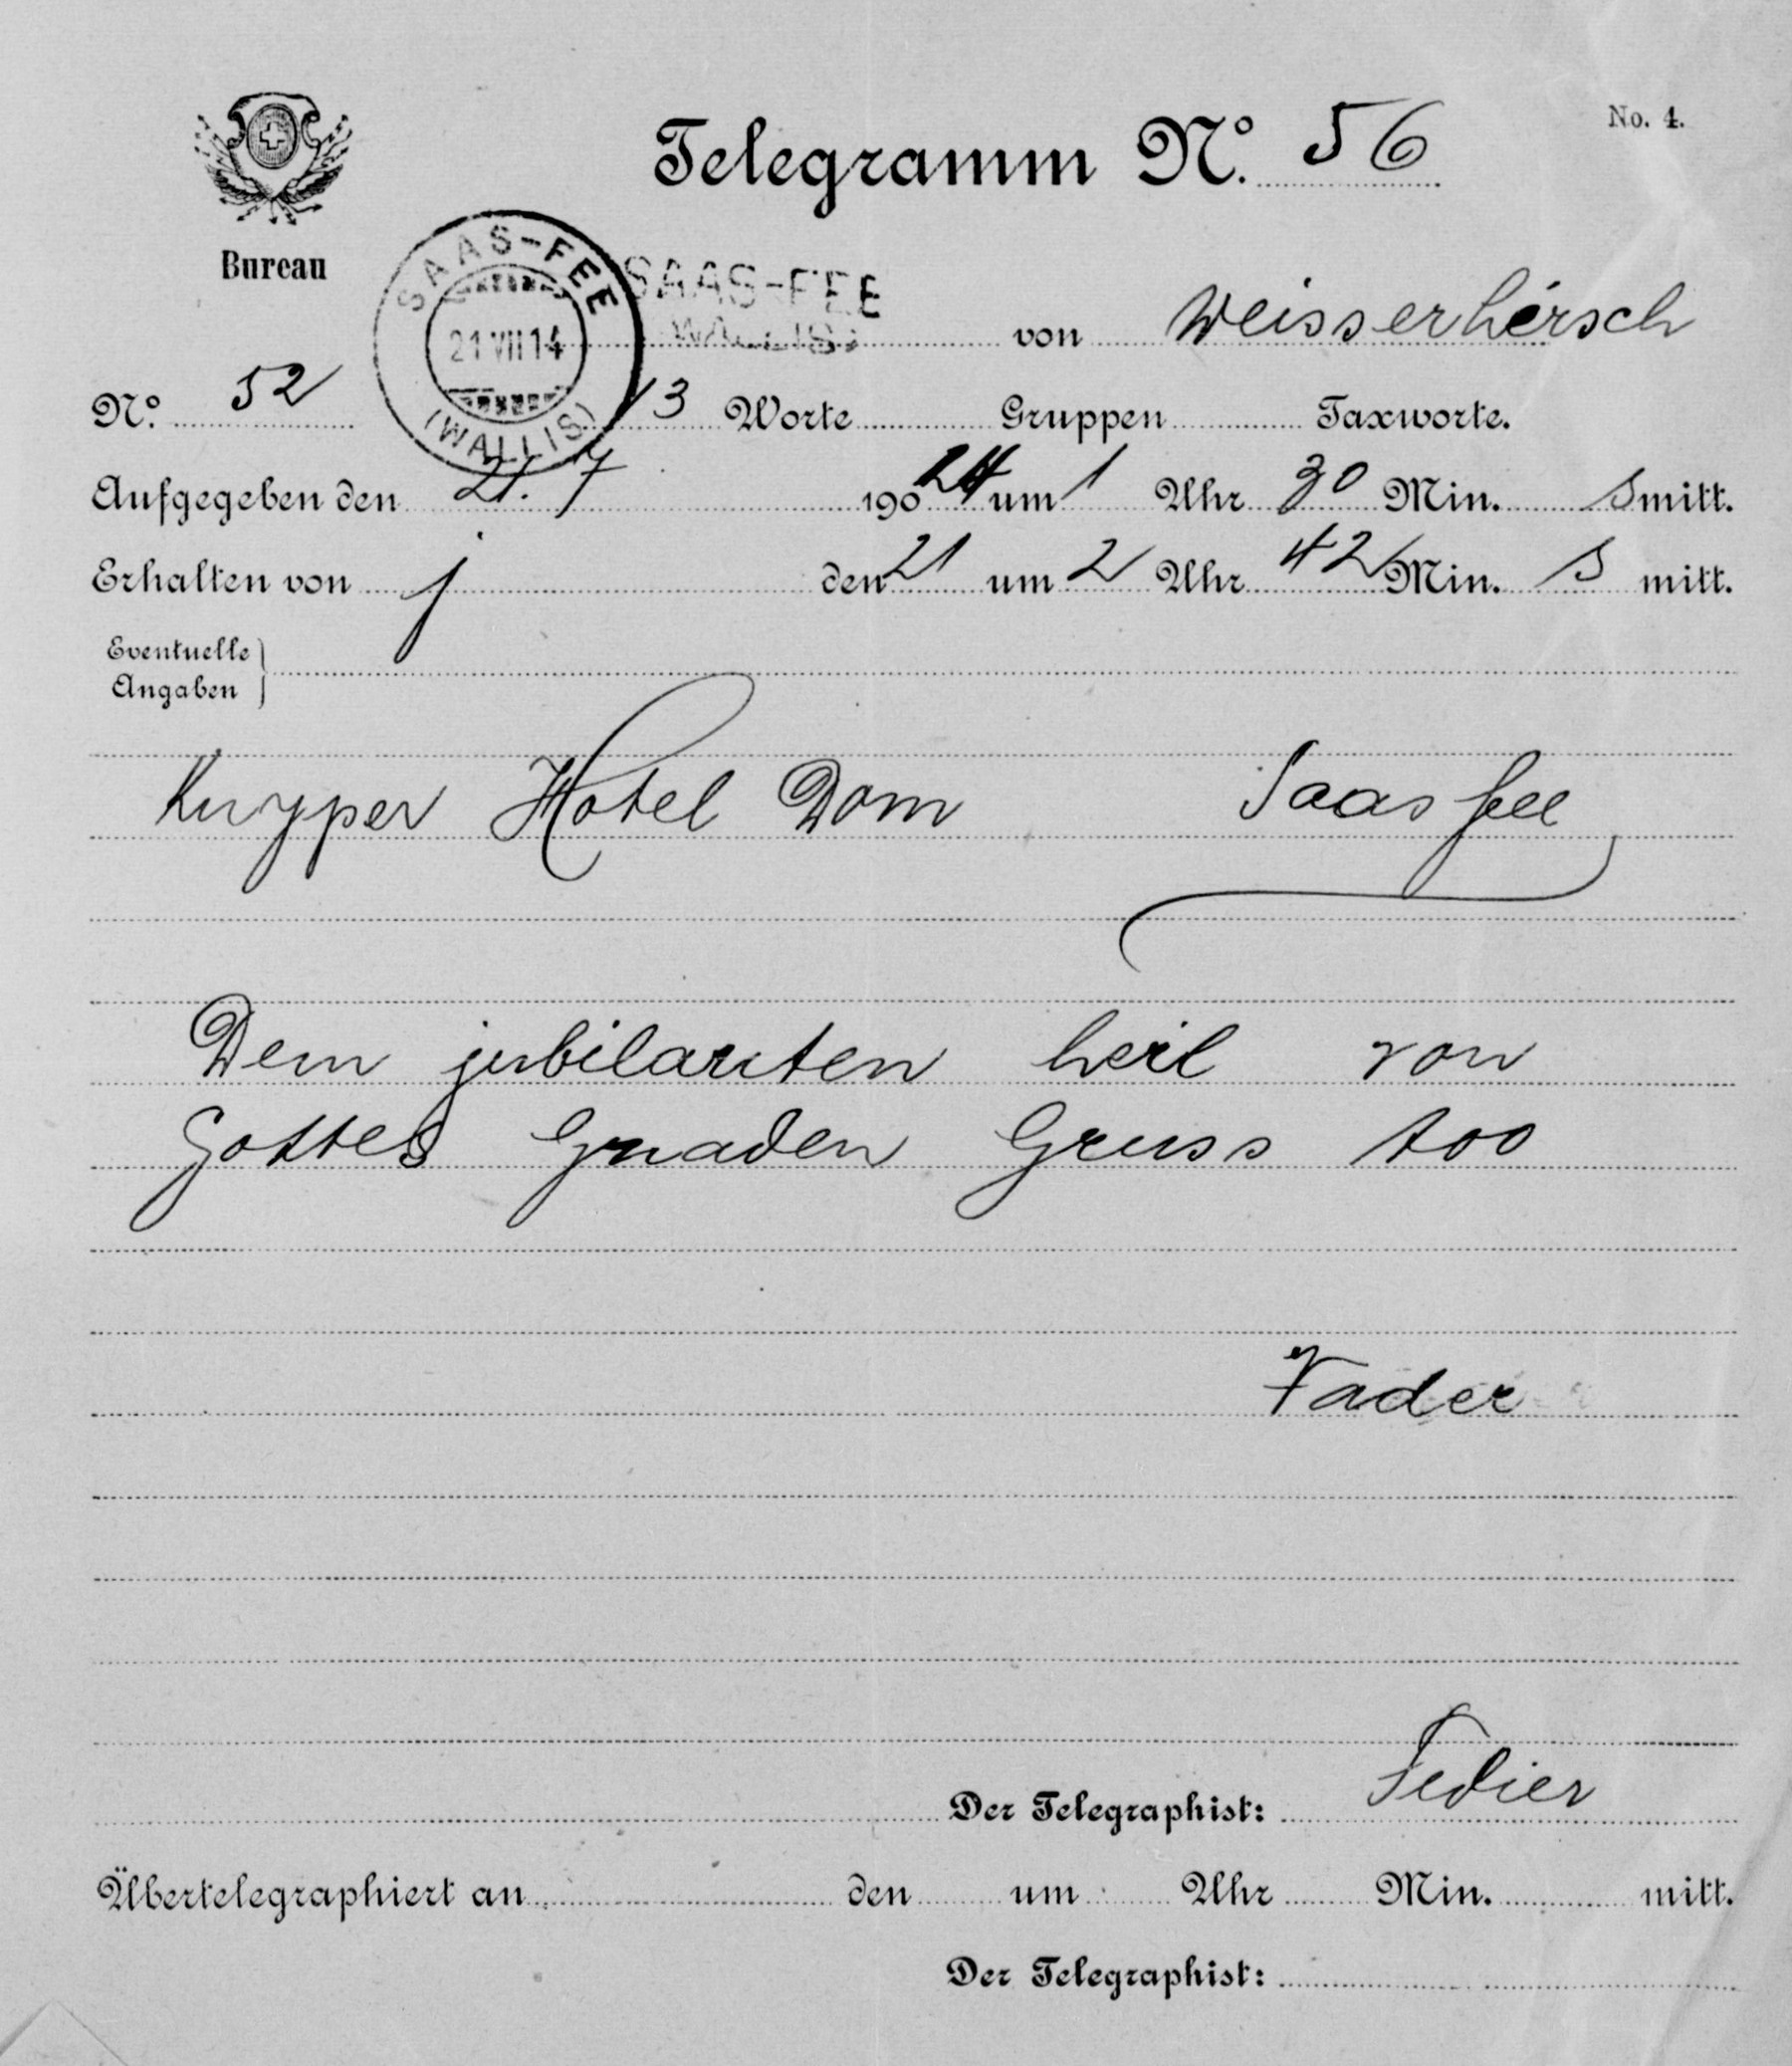 No. 4.
Telegramm No. 56
Bureau
SAAS-FEE
21 VII 14
(WALLIS)
SAAS-FEE
WALLIS
von Weisserhirsch
No. 52 13 Worte Gruppen Taxworte.
Aufgegeben den 21. 7 190 um 1 Uhr 30 Min. s mitt.
Erhalten von j den 21 um 2 Uhr 42 Min. s mitt.
Eventuelle
Angaben
Kuyper Hotel Dom Saas fee
Dem jubilanten heil von
Gottes Gnaden Gruss too
Vader
Der Telegraphist: Fedier
Übertelegraphiert an den um Uhr Min. mitt.
Der Telegraphist: